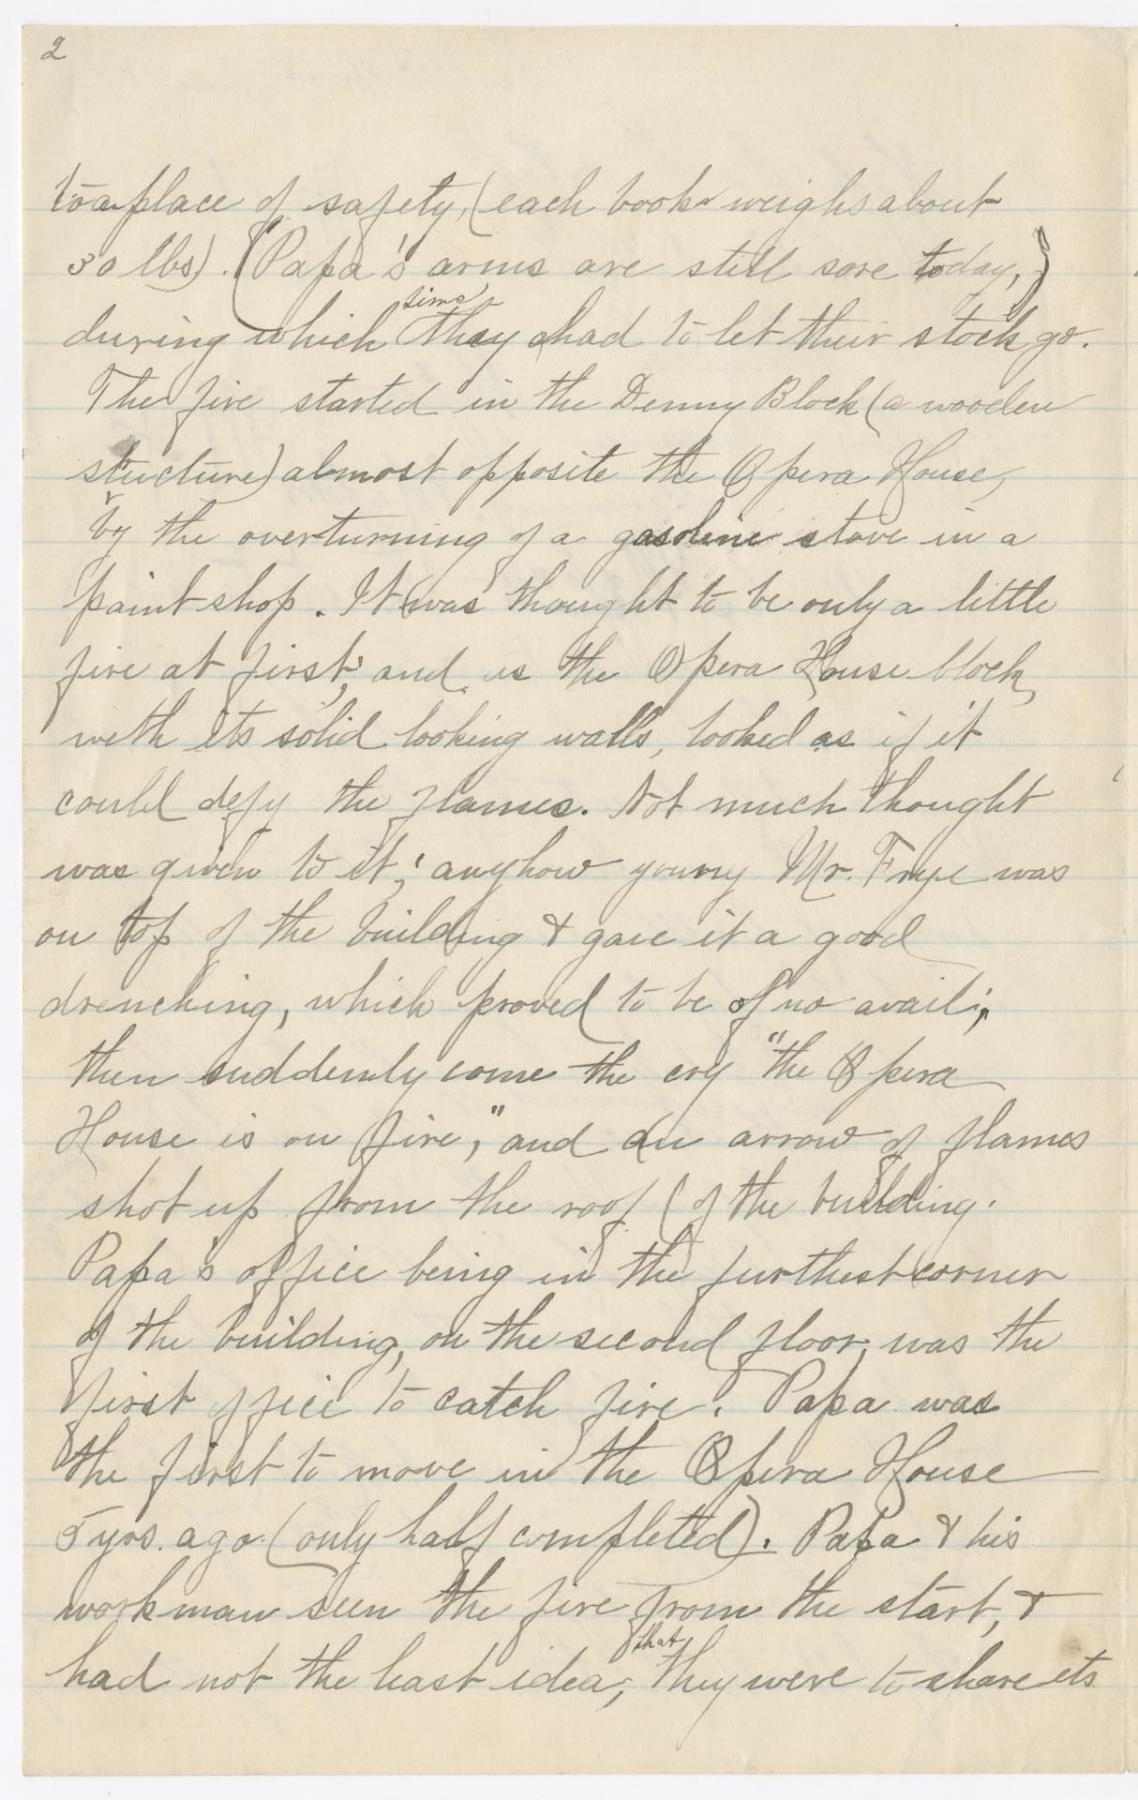 2
to a place of safety, (each book weighs about
30 lbs). (Papa's arms are still sore today,)
time
during which they had to let their stock go.
The fire started in the Denny Block (a wooden
structure) almost opposite the Opera House,
by the overturning of a gasoline stove in a
paint shop. It was thought to be only a little
fire at first; and as the Opera House block,
with its solid looking walls, looked as if it
could defy the flames. Not much thought
was given to it; anyhow young Mr. Frye was
on top of the building & gave it a good
drenching, which proved to be of no avail;
then suddenly come the cry "the Opera
House is on fire," and an arrow of flames
shot up from the roof of the building.
Papa's office being in the furthest corner
of the building, on the second floor, was the
first office to catch fire. Papa was
the first to move in the Opera House
5 yrs. ago (only half completed). Papa & his
workman seen the fire from the start, &
that
had not the least idea, they were to share its